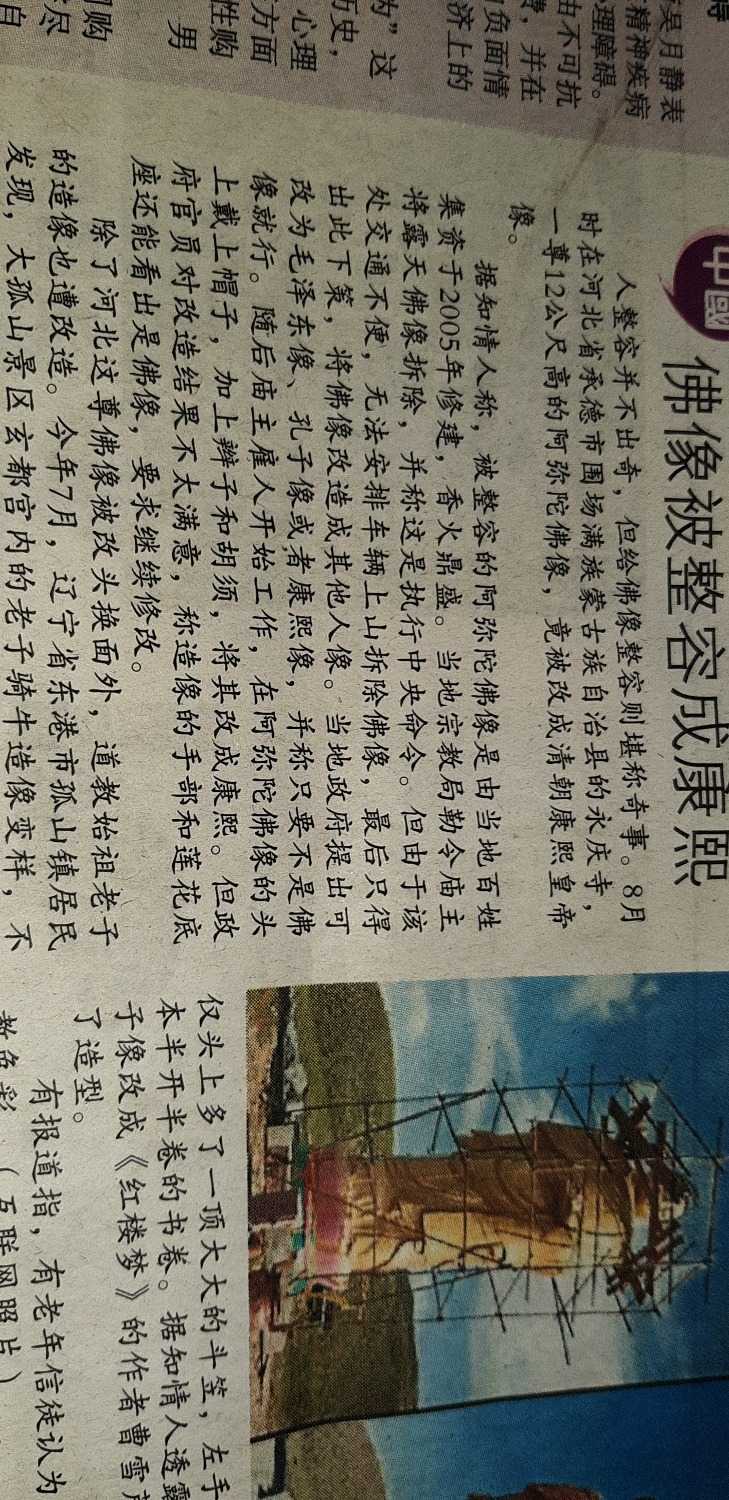 吴月静表
精神疾病
理障碍。
由不可抗
，并在
负面情
济上的
为”这
历史，
心理
方面
性购
男
购
尽
自
中國
佛像被整容成康熙
人整容并不出奇，但给佛像整容则堪称奇事。8月
时在河北省承德市围场满族蒙古族自治县的永庆寺，
一尊12公尺高的阿弥陀佛像，竟被改成清朝康熙皇帝
像。
据知情人称，被整容的阿弥陀佛像是由当地百姓
集资于2005年修建，香火鼎盛。当地宗教局勒令庙主
将露天佛像拆除，并称这是执行中央命令。但由于该
处交通不便，无法安排车辆上山拆除佛像，最后只得
出此下策，将佛像改造成其他人像。当地政府提出可
改为毛泽东像、孔子像或者康熙像，并称只要不是佛
像就行。随后庙主雇人开始工作，在阿弥陀佛像的头
上戴上帽子，加上辫子和胡须，将其改成康熙。但政
府官员对改造结果不太满意，称造像的手部和莲花底
座还能看出是佛像，要求继续修改。
除了河北这尊佛像被改头换面外，道教始祖老子
的造像也遭改造。今年7月，辽宁省东港市孤山镇居民
发现，大孤山景区玄都宫内的老子骑牛造像变样，不
仅头上多了一顶大大的斗笠，左手
本半开半卷的书卷。据知情人透露
子像改成《红楼梦》的作者曹雪
了造型。
有报道指，有老年信徒认为
教色彩（互联网照片）